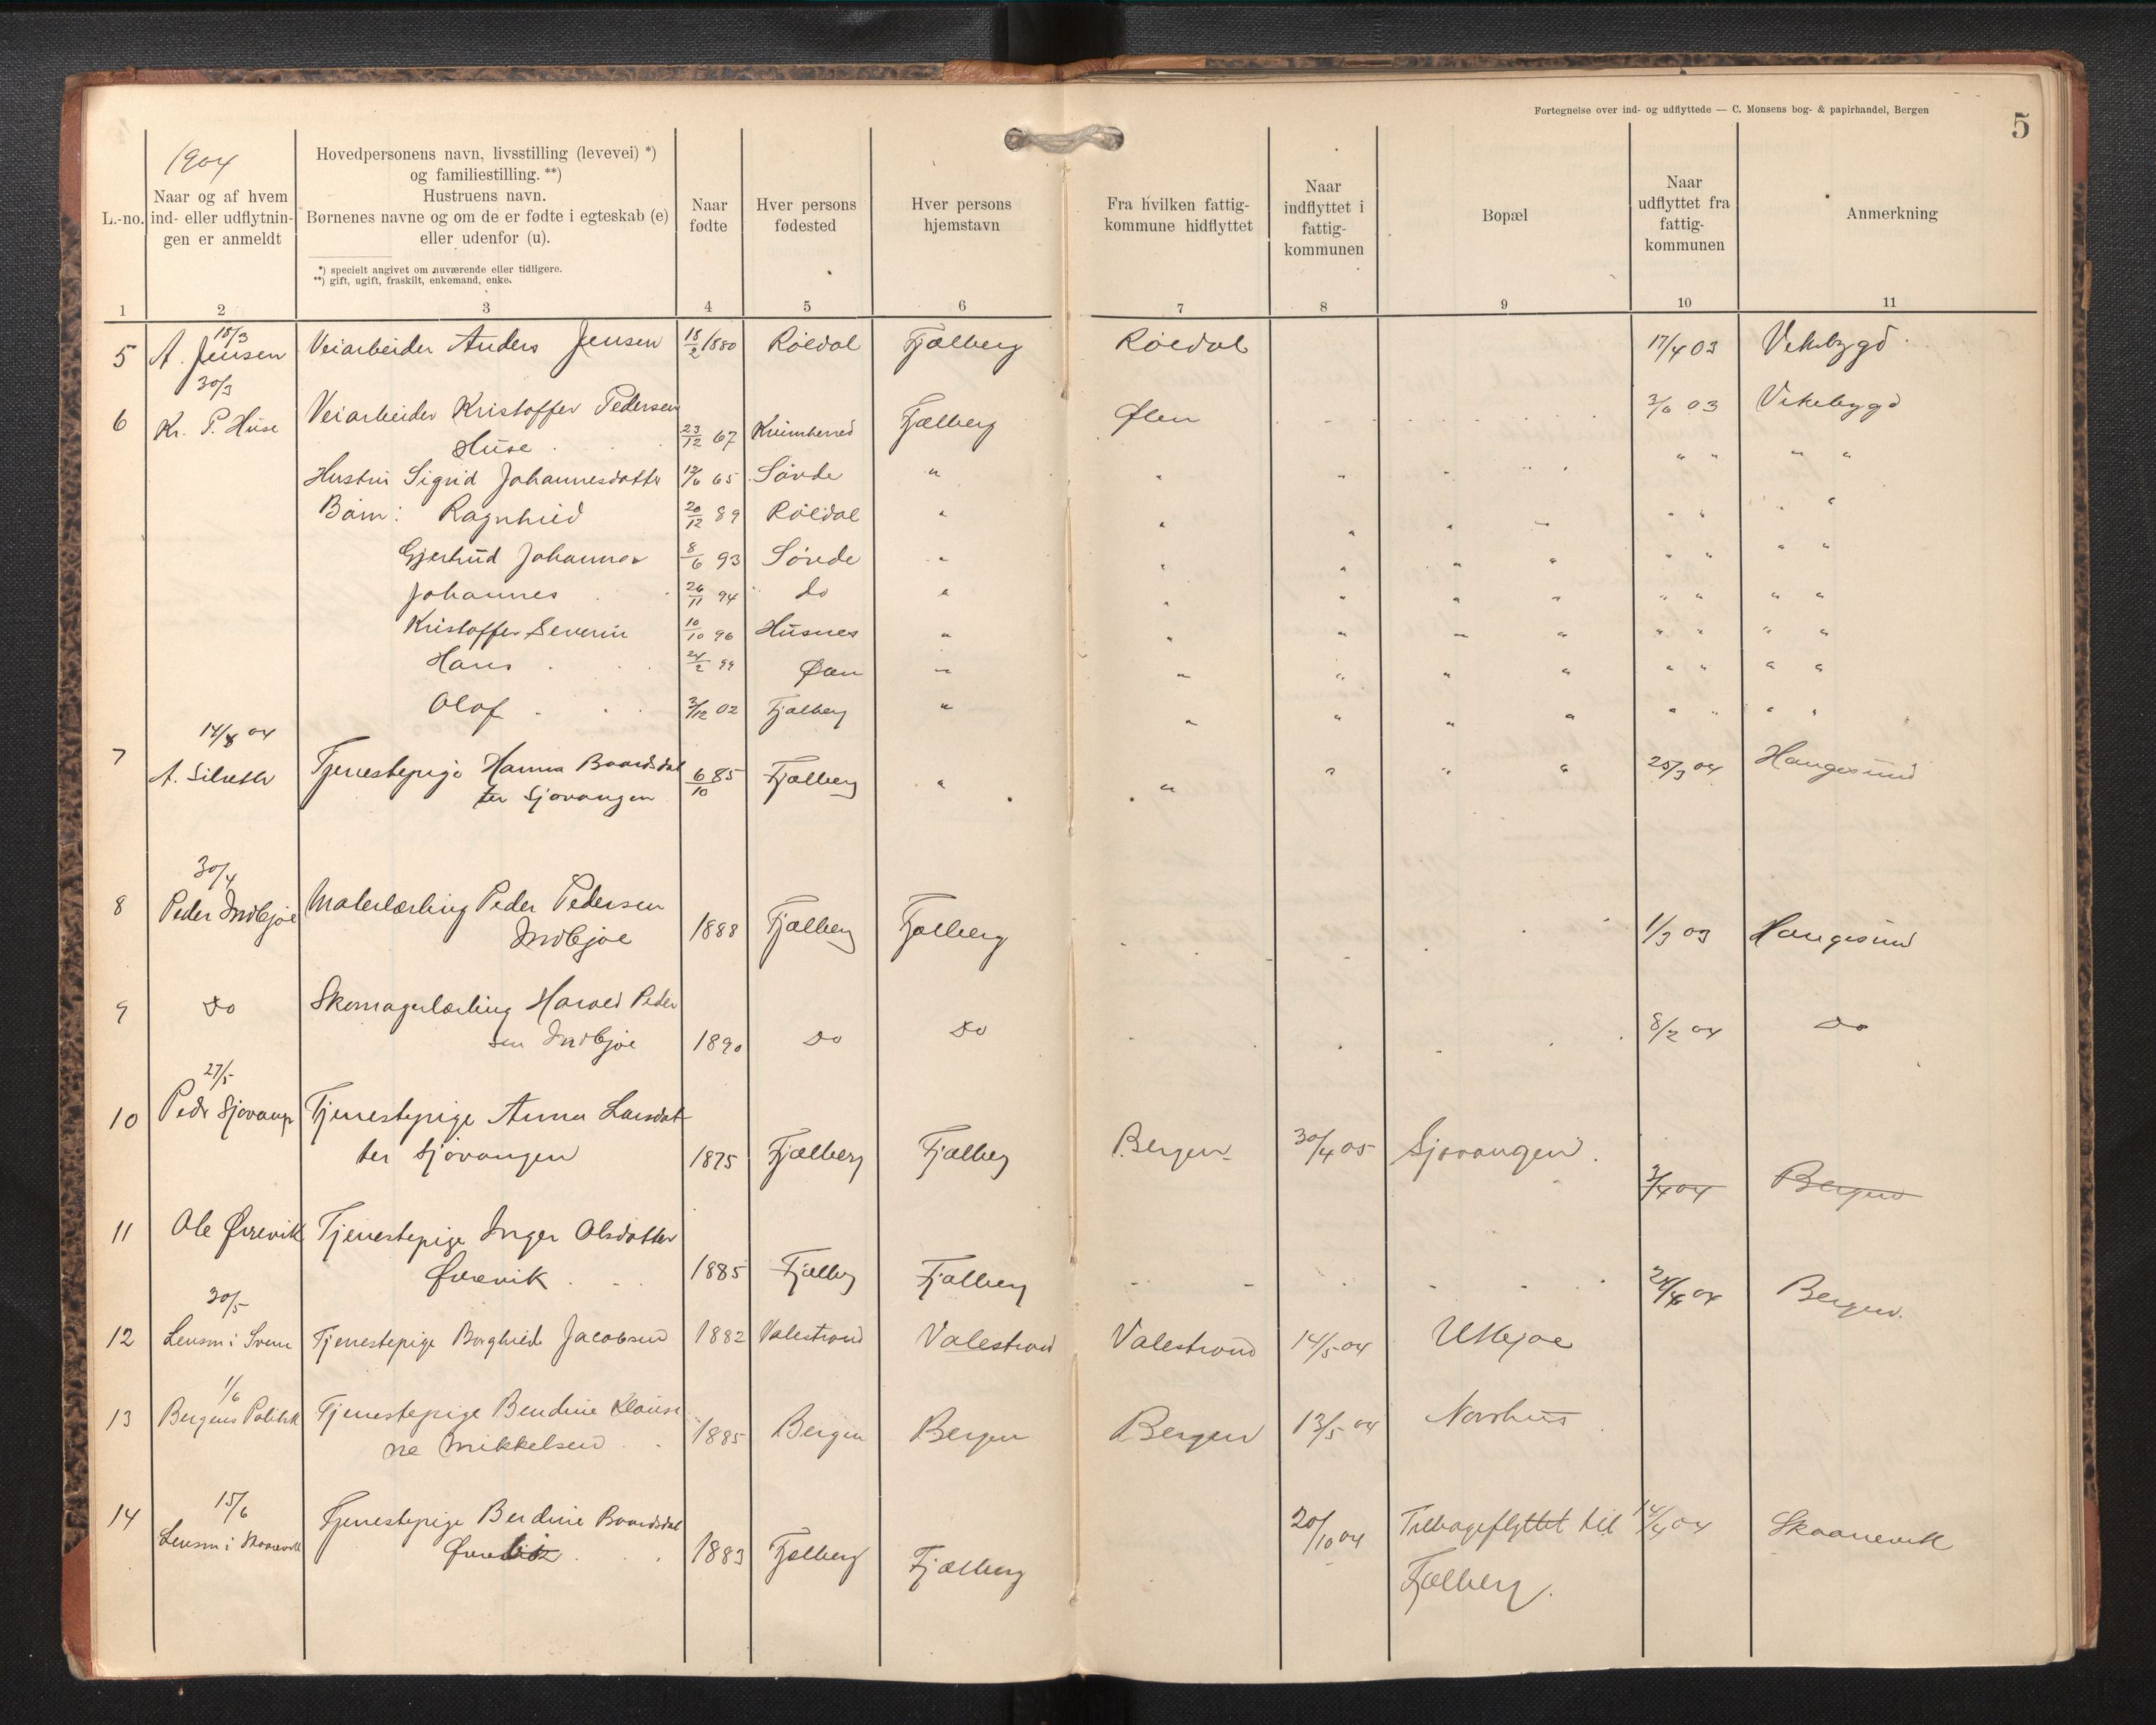 Fortegnelse over ind- og udflyttede — C. Monsens bog- & papirhandel, Bergen
5
1904
L.-no.
Naar og af hvem
ind- eller udflytnin-
gen er anmeldt
Hovedpersonens navn, livsstilling (levevei) *)
og familiestilling. **)
Hustruens navn.
Børnenes navne og om de er fødte i egteskab (e)
eller udenfor (u).
*) specielt angivet om nuværende eller tidligere.
**) gift, ugift, fraskilt, enkemand, enke.
Naar
fødte
Hver persons
fødested
Hver persons
hjemstavn
Fra hvilken fattig-
kommune hidflyttet
Naar
indflyttet i
fattig-
kommunen
Bopæl
Naar
udflyttet fra
fattig-
kommunen
Anmerkning
1 2 3 4 5 6 7 8 9 10 11
18/3
5 A. Jensen Veiarbeider Anders Jensen 18/2 1880 Röldal Fjælberg Röldal 17/4 03 Vikebygd
30/3
6 Kr. P. Huse Veiarbeider Kristoffer Pedersen Fjælberg Ølen 3/6 03 Vikebygd
Huse 23/12 67 Kvinnherred
Hustru Sigrid Johannesdatter 12/6 65 Sövde " " " " "
Børn: Ragnhild 20/12 89 Röldal " " " " "
Gjertrud Johanna 8/6 93 Sövde " " " " "
Johannes 26/11 94 do " " " " "
Kristoffer Severin 10/10 96 Husnes " " " " "
Hans 24/2 99 Ølen " " " " "
Olaf 3/12 02 Fjælberg " " " " "
14/8 04
7 A. Silseth Tjenestepige Hanna Baardsdat
ter Sjovangen 6/10 85 Fjælberg " " " " " 25/3 04 Haugesund
30/4
8 Peder Indbjoe Malerlærling Peder Pedersen
Indbjoe 1888 Fjælberg Fjælberg 1/3 03 Haugesund
9 Do Skomagerlærling Harald Peder
sen Indbjoe 1890 Do Do 8/2 04 Do
27/5
10 Peder Sjovang Tjenestepige Anna Larsdat
ter Sjovangen 1875 Fjælberg Fjælberg Bergen 30/4 05 Sjovangen 3/4 04 Bergen
11 Ole Øvrevik Tjenestepige Inger Olsdatter
Øvrevik 1885 Fjælberg Fjælberg 24/4 04 Bergen.
30/5
12 Lensm i Sveen Tjenestepige Borghild Jacobsen 1882 Valestrand Valestrand Valestrand 14/5 04 Utbjoe
1/6
13 Bergens Politik Tjenestepige Bendine Klausi
ne Mikkelsen 1885 Bergen Bergen Bergen 13/5 04 Nordhus
15/6
14 Lensm i Skaanevik Tjenestepige Berdine Baardsdat
1883 Fjælberg Fjælberg 20/10 04 Tilbageflyttet til 14/4 04 Skaanevik
Fjælberg.